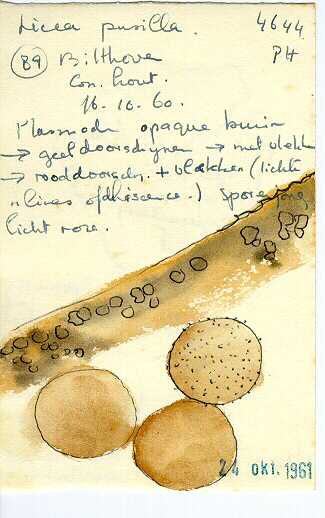 Licea pusilla. 4644
89 Bilthoven PH
Con. hout.
16-10-60.
Plasmodi opaque bruin
→ geel doorschijnen → met vlekk
→ rood doorsch. + vlekken (lichte
"lines of dehiscence.) Spore
licht roze.
24 okt. 1961